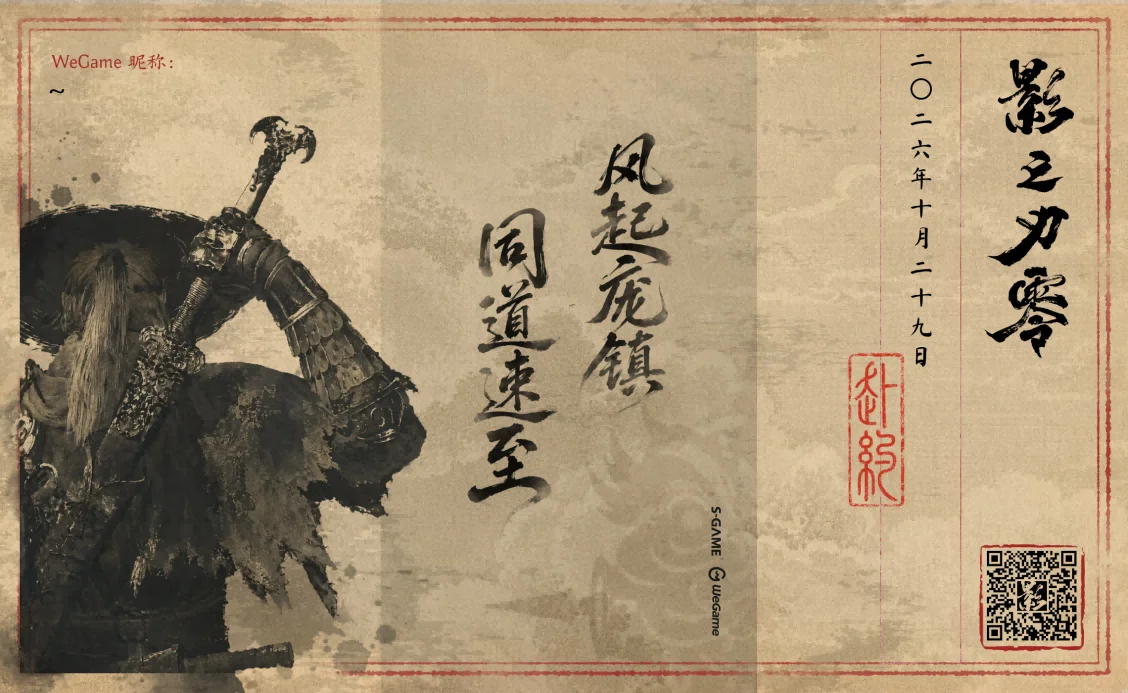 影之刃零
二〇二六年十月二十九日
赴約
风起庞镇
同道速至
S-GAME WeGame
WeGame 昵称：
~